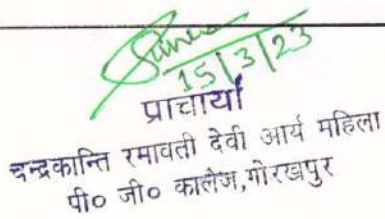 15/3/23
प्राचार्या
चन्द्रकान्ति रमावती देवी आर्य महिला
पी० जी० कालेज,गोरखपुर